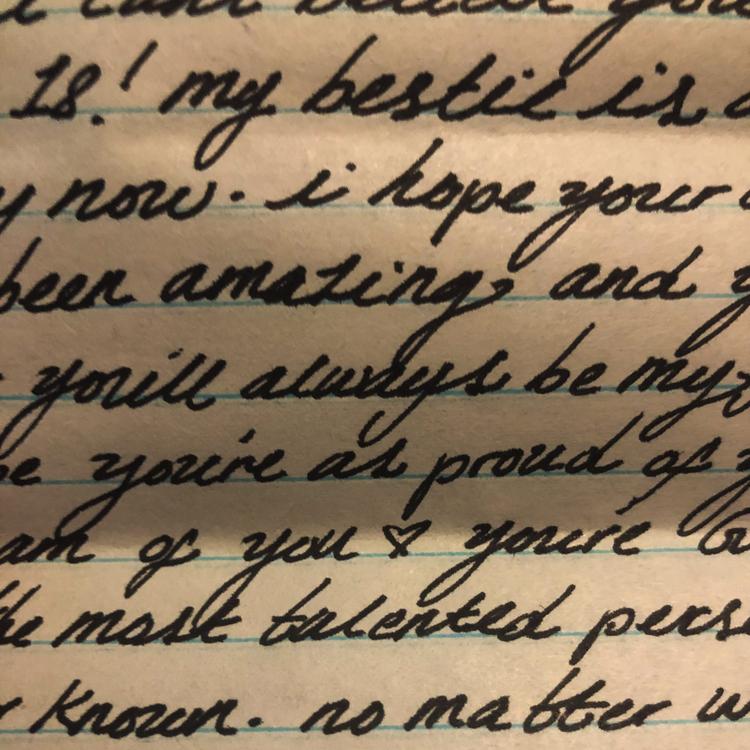 i can't believe you
18! my bestie is a
y now. i hope your
been amazing, and y
you'll always be my
be you're as proud of y
am of you ♡ you're
the most talented perso
r known. no matter w